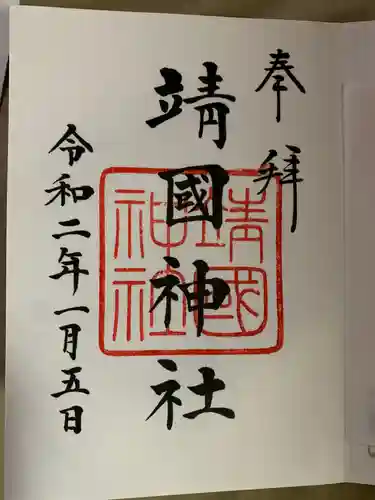 奉拝
靖國神社
靖國神社
令和二年一月五日